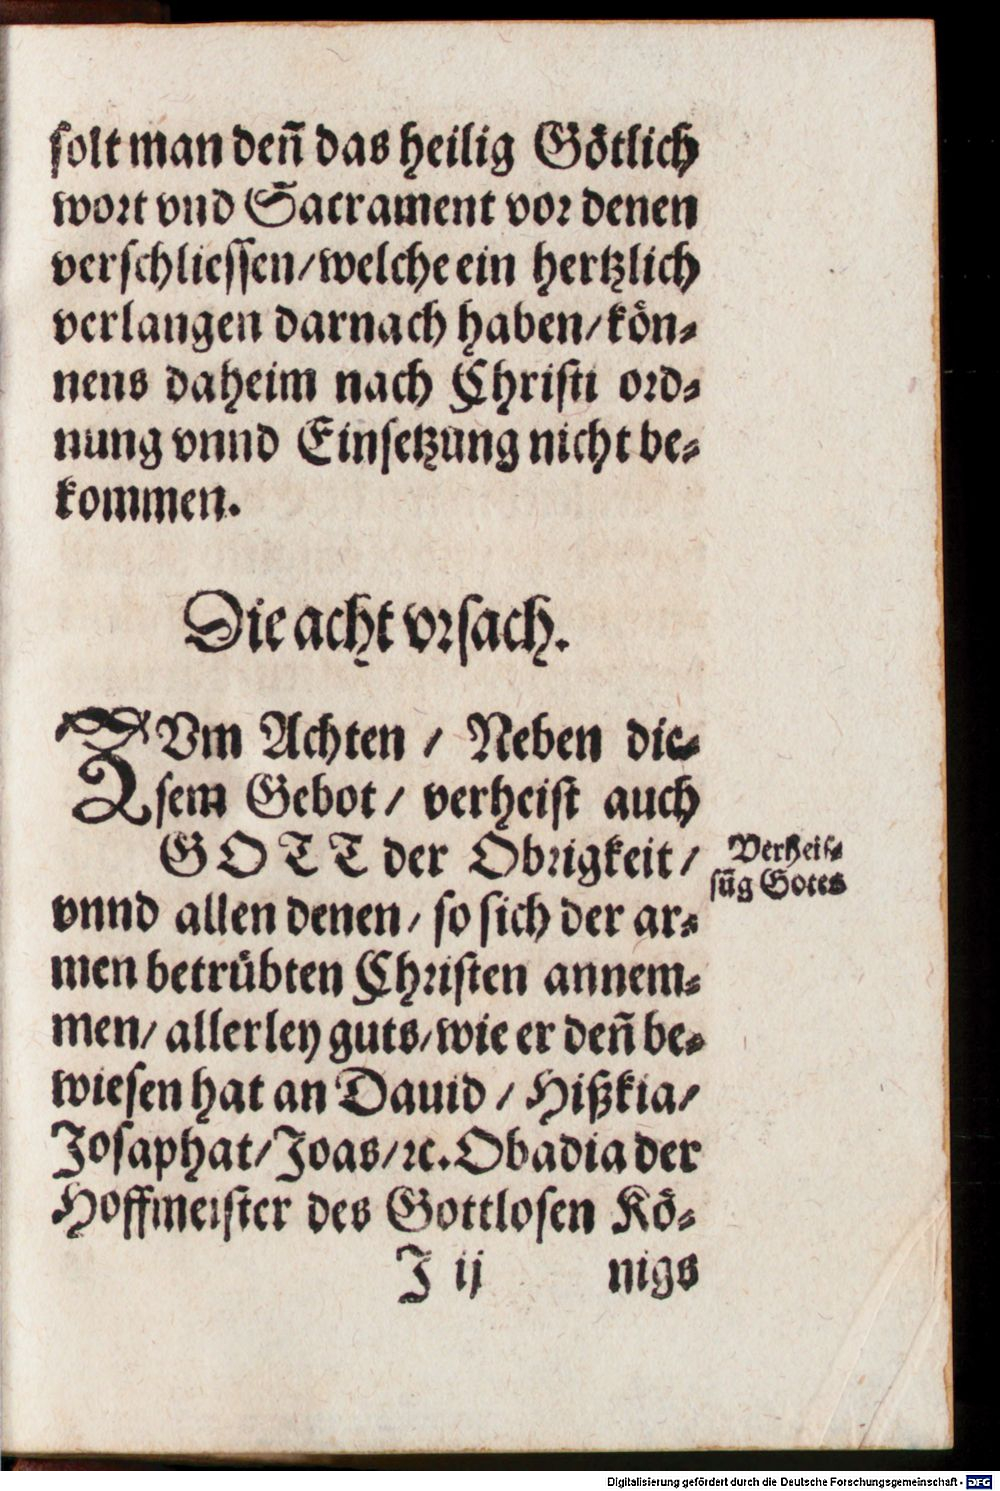 solt man deñ das heilig Götlich
wort vnd Sacrament vor denen
verschliessen/welche ein hertzlich
verlangen darnach haben/kön-
nens daheim nach Christi ord-
nung vnnd Einsetzung nicht be-
kommen.
Die acht vrsach.
ZVm Achten / Neben die-
sem Gebot / verheist auch
GOTT der Obrigkeit /
Verheis-
sũg Gotes
vnnd allen denen / so sich der ar-
men betrübten Christen annem-
men/ allerley guts/wie er deñ be-
wiesen hat an Dauid / Hißkia/
Josaphat/Joas/ꝛc. Obadia der
Hoffmeister des Gottlosen Kö-
J ij nigs
Digitalisierung gefördert durch die Deutsche Forschungsgemeinschaft - DFG